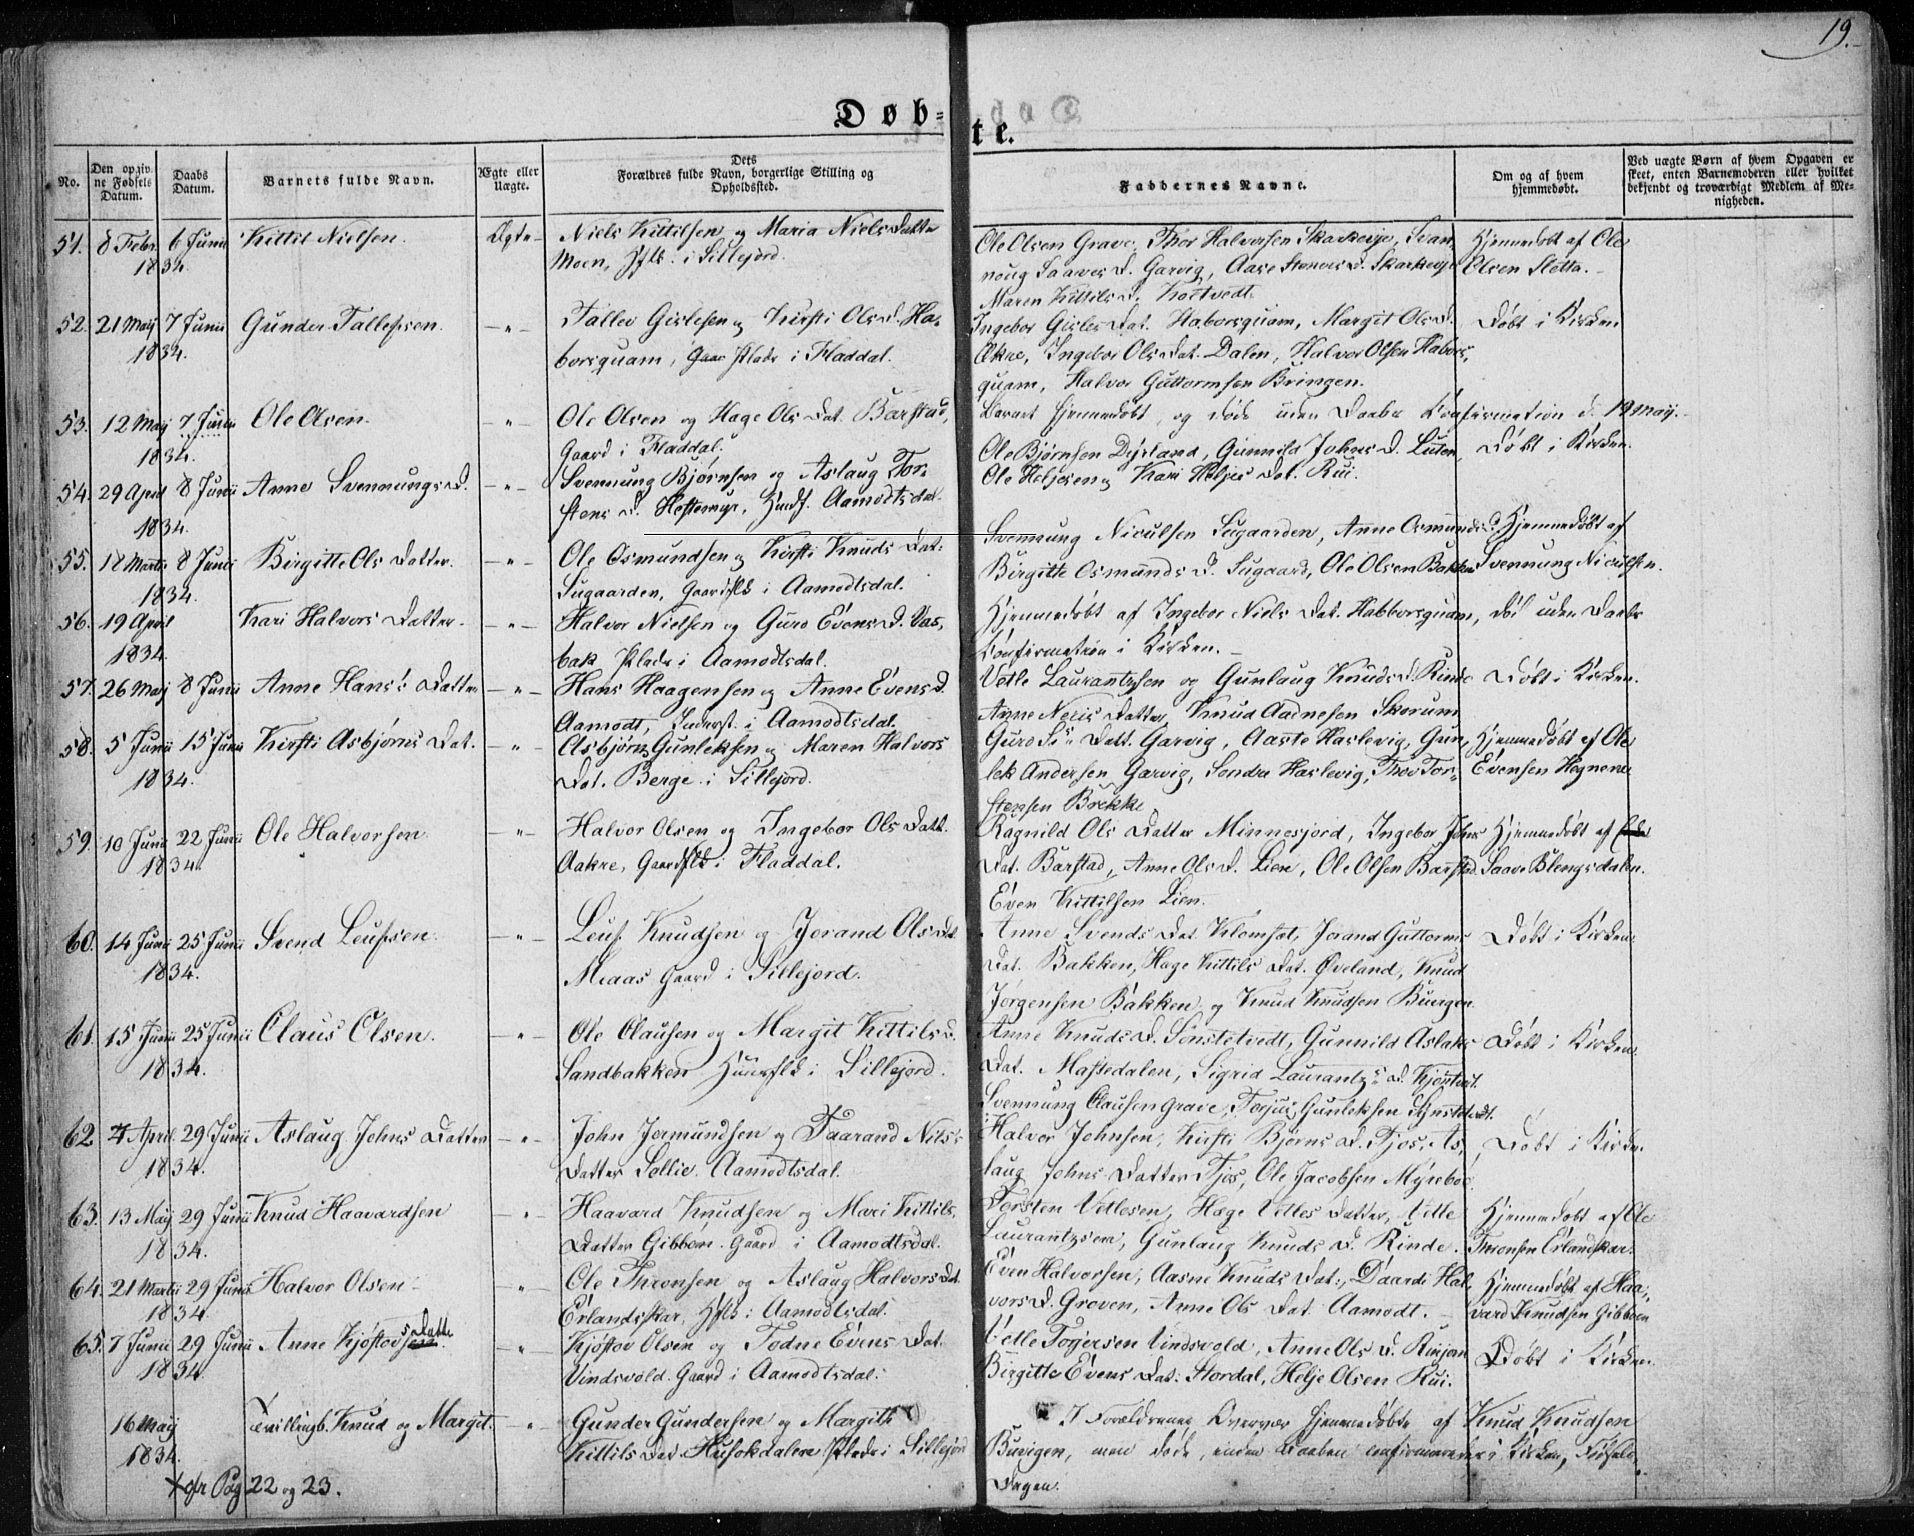 19.
Døb-
te.
No.
Den opgiv-
ne Fødsels
Datum.
Daabs
Datum.
Barnets fulde Navn.
Ægte eller
Uægte.
Dets
Forældres fulde Navn, borgerlige Stilling og
Opholdsted.
Faddernes Navne.
Om og af hvem
hjemmedøbt.
Ved uægte Børn af hvem Opgaven er
skeet, enten Barnemoderen eller hvilket
bekjendt og troværdigt Medlem af Me-
nigheden.
51. 8 Febr. 6 Junii Kittil Nielsen. Ægte Niels Kittilsen og Maria Niels Datter
1834. Moen, Hsfk. i Sillejord.
Ole Olsen Grave, Thor Halvorsen Skarkeeje, Svan- Hjemmedøbt af Ole
noug Saaves D. Garvig, Aase Steners D. Skarkeeje Olsen Sletta.
Maren Kittils D. Kortvedt.
52. 21 Maij 7 Junii Gunder Tallefsen. -"- Tallev Gislesen og Kirsti Ols D. Ha-
1834. borsquam, Gaar Plads i Fladdal.
Ingebor Gisles Dat. Haborsquam, Margit Ols D. Døbt i Kirken
Økre, Ingebor Ols Dat. Dalen, Halvor Olsen Habors-
quam, Halvor Guttormsen Bringen.
53. 12 Maij 7 Junii Ole Olsen. -"- Ole Olsen og Hage Ols Dat. Barstad,
1834. Gaard i Fladdal.
Barnet hjemmedøbt, og døde uden Daabs Confirmation d. 19 Maij.
54. 29 April 8 Junii Anne Svennungs D. -"- Svennung Bjørnsen og Aslaug Tor-
1834. stens D. Hestemyr, Huusf. Aamodtsdal.
Ole Bjørnsen Dejsland, Gunnild Johns D. Luten Døbt i Kirken.
Ole Heljesen og Kari Heljes Dat. Rui.
55. 18 Martii 8 Junii Birgitte Ols Datter. -"- Ole Osmundsen og Kirsti Knuds Dat:
1834. Sugaarden, Gaardsfk i Aamodtsdal.
Svennung Niculsen Sugaarden, Anne Osmunds D. Hjemmedøbt af
Birgitte Osmunds D. Sugaard, Ole Olsen Bakken Svennung Niculsen.
56. 19 April Kari Halvors Datter. -"- Halvor Nielsen og Guro Evens D. Vas-
1834. bak Plads i Aamodtsdal.
Hjemmedøbt af Ingebor Niels Dat. Habborsquam, død uden Daabs
Confirmation i Kirken.
57. 26 Maij 8 Junii Anne Hans's Datter -"- Hans Haagensen og Anne Evens D.
Aamodt, Inderst. i Aamodtsdal.
Vetle Laurantzsen og Gunlaug Knuds D. Rinde Døbt i Kirken.
Anne Neris Datter, Knud Aadnesen Skorum
58. 5 Junii 15 Junii Kirsti Asbjørns Dat. -"- Asbjørn Gunleksen og Maren Halvors
1834. Dat. Berge i Sillejord.
Guro Datt. Garvig, Aaste Haslevig, Gun- Hjemmedøbt af Ole
lek Andersen Garvig, Sondre Haslevig, Thov Tor- Evensen Hegnene
stensen Brekke
59. 10 Junii 22 Junii Ole Halvorsen -"- Halvor Olsen og Ingebor Ols Datt.
1834. Aakre, Gaardsfk i Fladdal.
Ragnild Ols Datter Minnesjord, Ingebor Johns Hjemmedøbt af
Dat. Barstad, Anne Ols D. Lien, Ole Olsen Barstad Saave Blengsdalen.
Even Kittilsen Lien.
60. 14 Junii 25 Junii Svend Leufsen. -"- Leuf Knudsen og Jorand Ols Dt.
1834. Maas Gaard i Sillejord.
Anne Svends Dat. Klomset, Jorand Guttorms Døbt i Kirken
Dat. Bakken, Hage Kittils Dat. Øveland, Knud
Jørgensen Bakken og Knud Knudsen Buigen.
61. 15 Junii 25 Junii Claus Olsen. -"- Ole Clausen og Margit Kittils D.
1834. Sandbakken Huusfk i Sillejord.
Anne Knuds D. Sønstetvedt, Gunnild Aslaks Døbt i Kirken
Dat. Mastedalen, Sigrid Laurantz's D. Kjøstvet.
Svennung Clausen Grave, Torjus Gunleksen Synstetvedt.
62. 4 April 29 Junii Aslaug Johns Datter -"- John Jermundsen og Taarand Nils's
1834. Datter Sollie. Aamodtsdal.
Halvor Johnsen, Kirsti Bjørns D. Tjos, As- Døbt i Kirken.
laug Johns Datter Tjos, Ole Jacobsen Myrebøe
63. 13 Maij 29 Junii Knud Haavardsen -"- Haavard Knudsen og Mari Kittils
1834. Datter Gibbøn. Gaard i Aamodtsdal.
Torsten Vetlesen, Hæge Vetles Datter, Vetle Hjemmedøbt af Ole
Laurantzsen, Gunlaug Knuds D. Rinde. Thronsen Erlandskar.
64. 21 Martii 29 Junii Halvor Olsen -"- Ole Thronsen og Aslaug Halvors Dat.
1834. Erlandsskar, Hsfk i Aamodtsdal.
Even Halvorsen, Aasne Knuds Dat:, Daarde Hal- Hjemmedøbt af Haa-
vors D. Groven, Anne Ols Dat. Aamodt. vard Knudsen Gibbøen
65. 7 Junii 29 Junii Anne Kjøstovs Datter -"- Kjøstov Olsen og Todne Evens Dat.
1834. Vindsvold. Gaard i Aamodtsdal.
Vetle Torjersen Vindsvold, Anne Ols D. Rinjom Døbt i Kirken.
Birgitte Evens Dat: Stordal, Helje Olsen Rui.
16 Maij Tvillingb. Knud og Margit. -"- Gunder Gundersen og Margith
1834. Kittils Dat Husokdalen Plads i Sillejord
I Forældrenes Overvær hjemmedøbte af Knud Knudsen
Buigen, men døde, inden Daaben confirmeredes i Kirken, Fødsels-
Dagen.
cfr Pag 22 og 23.